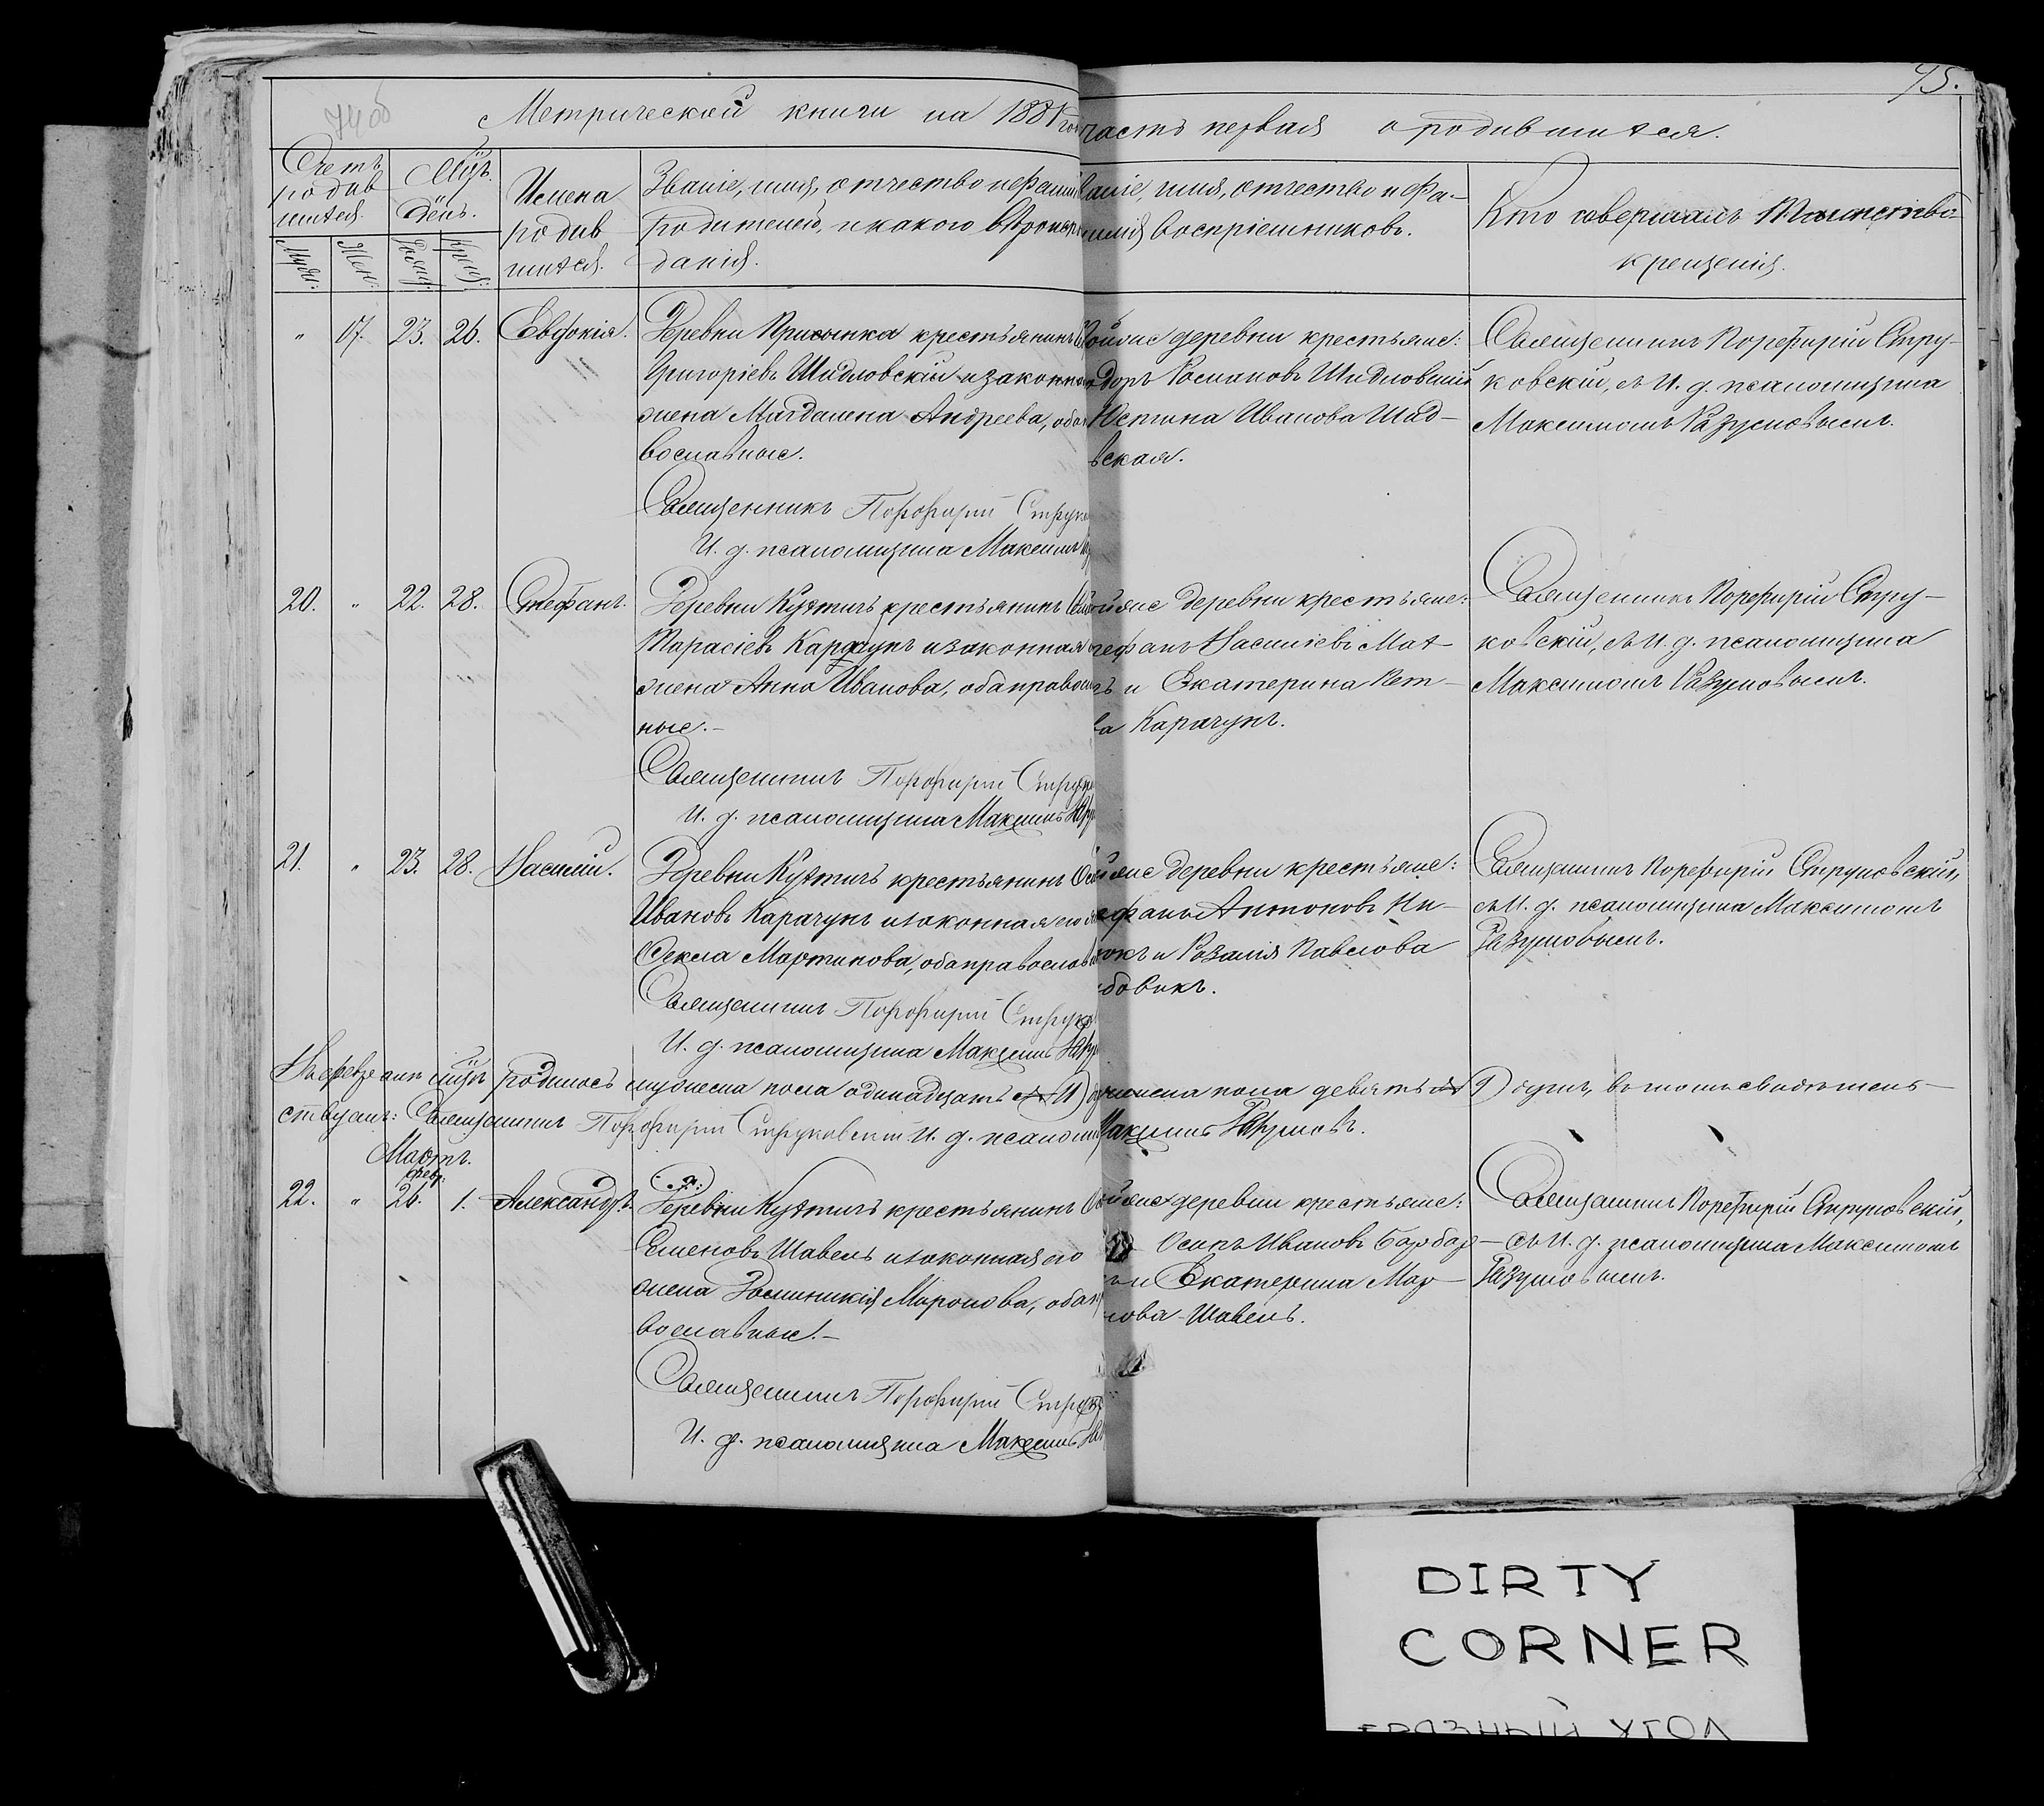 74об
75.
Метрической книги на 1881 год
часть первая о родившихся.
Счетъ родив шихся.
Мцъ. День.
Имена родив шихся.
Званіе, имя, отчество и фами
Родителей, и какого вѣроиспо
данія.
ваніе, имя, отчество и фа-
милія воспріемниковъ.
Кто совершалъ таинство
крещенія.
Муж:
Жен:
Рожд:
Крещ:
" 17. 23. 26. Евдокія.
Деревни Присынка крестьянинъ
Григоріевъ Шидловскій и законная
жена Магдалена Андреева, оба
вославные.
Священникъ Порфирій Струко
И. д. псаломщика Максимъ
деревни крестьяне:
доръ Романовъ Шидловскій
Юстина Иванова Шид-
вская.
Священникъ Порфирій Стру-
ковскій, съ И. д. псаломщика
Максимомъ Разумовымъ.
20. " 22. 28. Стефанъ.
Деревни Кухтичъ крестьянинъ
Тарасіевъ Карачунъ и законная
жена Анна Иванова, оба правосл
ные.-
Священникъ Порфирій Струко
И. д. псаломщика Максимъ
ойже деревни крестьяне:
тефанъ Василіевъ Мах-
ъ и Екатерина Пет-
ва Карачунъ.
Священникъ Порфирій Стру-
ковскій, съ И. д. псаломщика
Максимомъ Разумовымъ.
21. " 23. 28. Василій.
Деревни Кухтичъ крестьянинъ
Ивановъ Карачунъ и законная его
Фекла Мартинова, оба православ
Священникъ Порфирій Струко
И. д. псаломщика Максимъ
ойже деревни крестьяне:
ефанъ Антоновъ Ни-
окъ и Розалія Павлова
бовикъ.
Священникъ Порфирій Струковскій,
съ И. д. псаломщика Максимомъ
Разумовымъ.
родилось мужеска пола одинадцать 11) женска пола девять 9) душъ, въ томъ свидѣтель-
ствуемъ: Священникъ Порфирій Струковскій И. д. псаломщ Максимъ Разумовъ.
Мартъ.
февр:
22. " 26. 1. Александръ.
Деревни Кухтичъ крестьянинъ
Семеновъ Шавель и законная его
жена Доминикія Миронова, оба
вославные.-
Священникъ Порфирій Струко
И. д. псаломщика Максимъ
ойже деревни крестьяне:
Осипъ Ивановъ Барбар-
ъ и Екатерина Мар-
нова Шавель.
Священникъ Порфирій Струковскій,
съ И. д. псаломщика Максимомъ
Разумовымъ.
DIRTY
CORNER
ГРЯЗНЫЙ УГОЛ